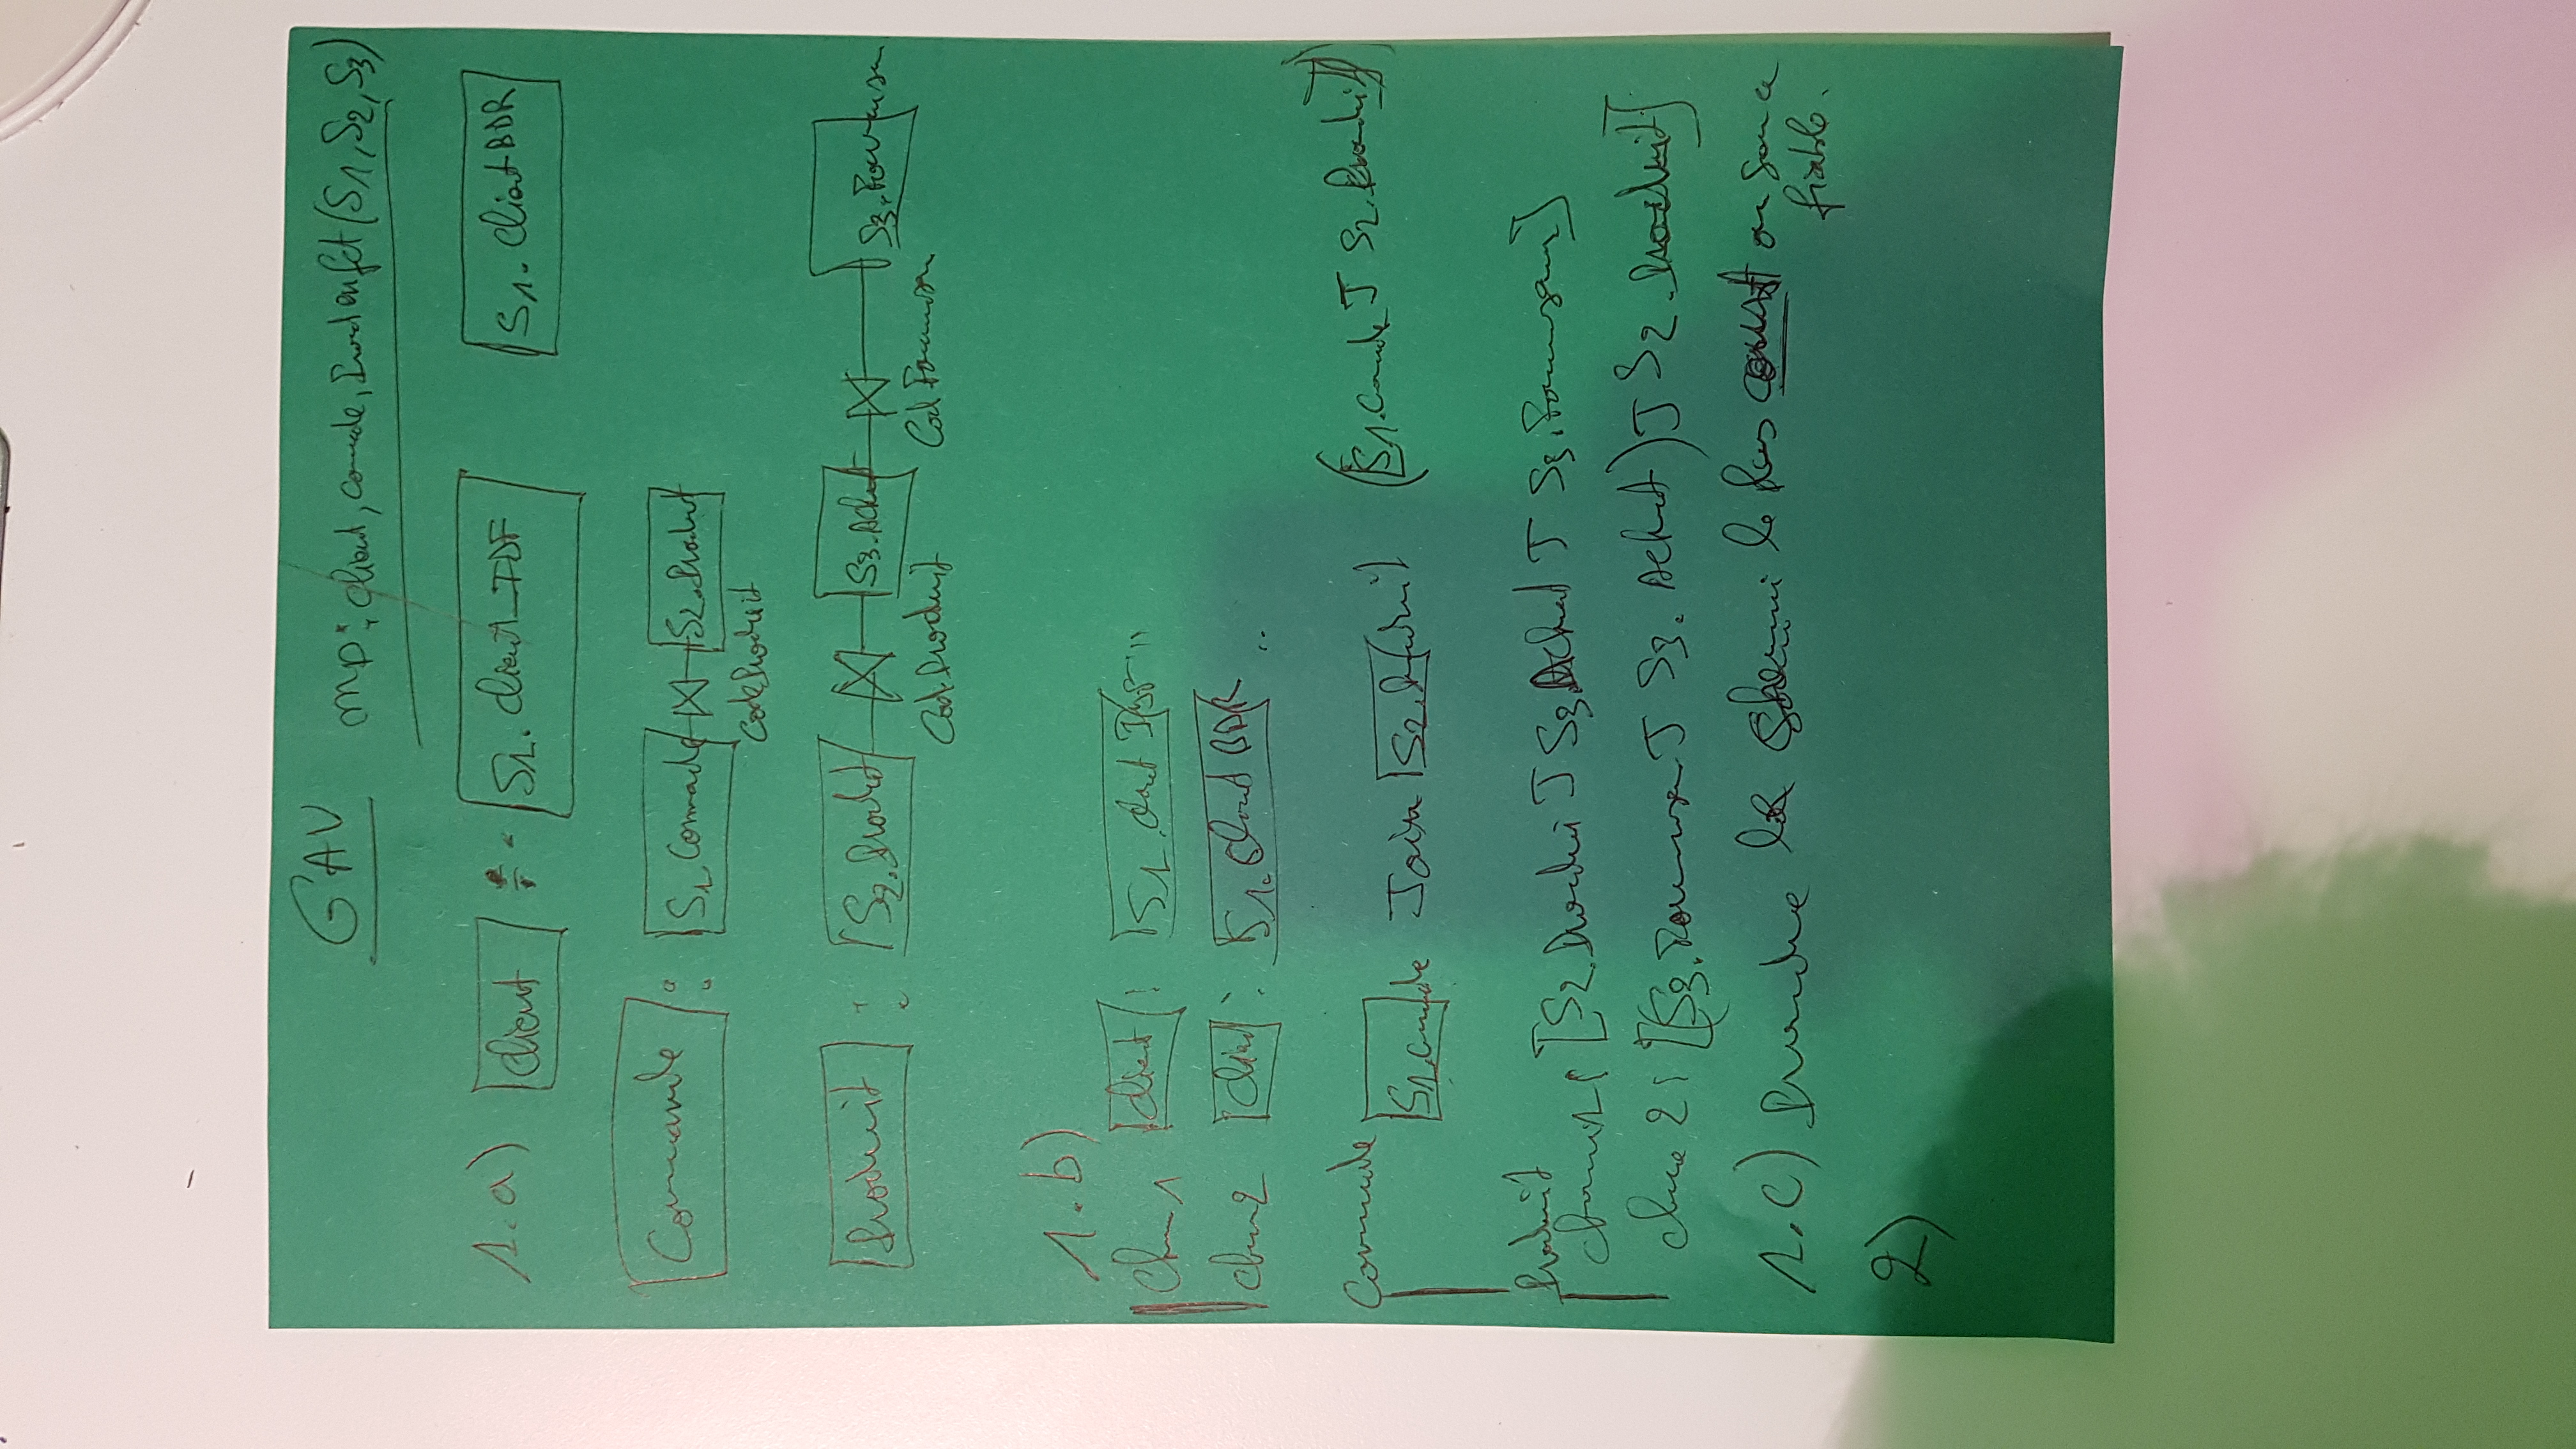 GAV
MD: Client, Comande, Prod en fct (S1, S2, S3)
1.a) Client : S1. Client_IDF S1. Client BDR
Commande : S1 Commade ⋈ S2.Produit
CodeProduit
Produit : S2.Produit ⋈ S3.Achat ⋈ S3.Fournisseur
Cod.Produit Cod Fournisseur
1.b)
Chem 1 Client : S1. Client IDF ...
chem 2 Client : S1. Client BDR ..
Commande
S1.comde Join S2.Produit (S1.Comde J S2.Produit)
Produit
chemin 1 : [S2.Produit J S3.Achat J S3.Fournisseur]
chem 2 : [(S3.Fournisseur J S3. Achat) J S2.Produit]
1.c) Prendre le chemin le plus court ou source
fiable.
2)